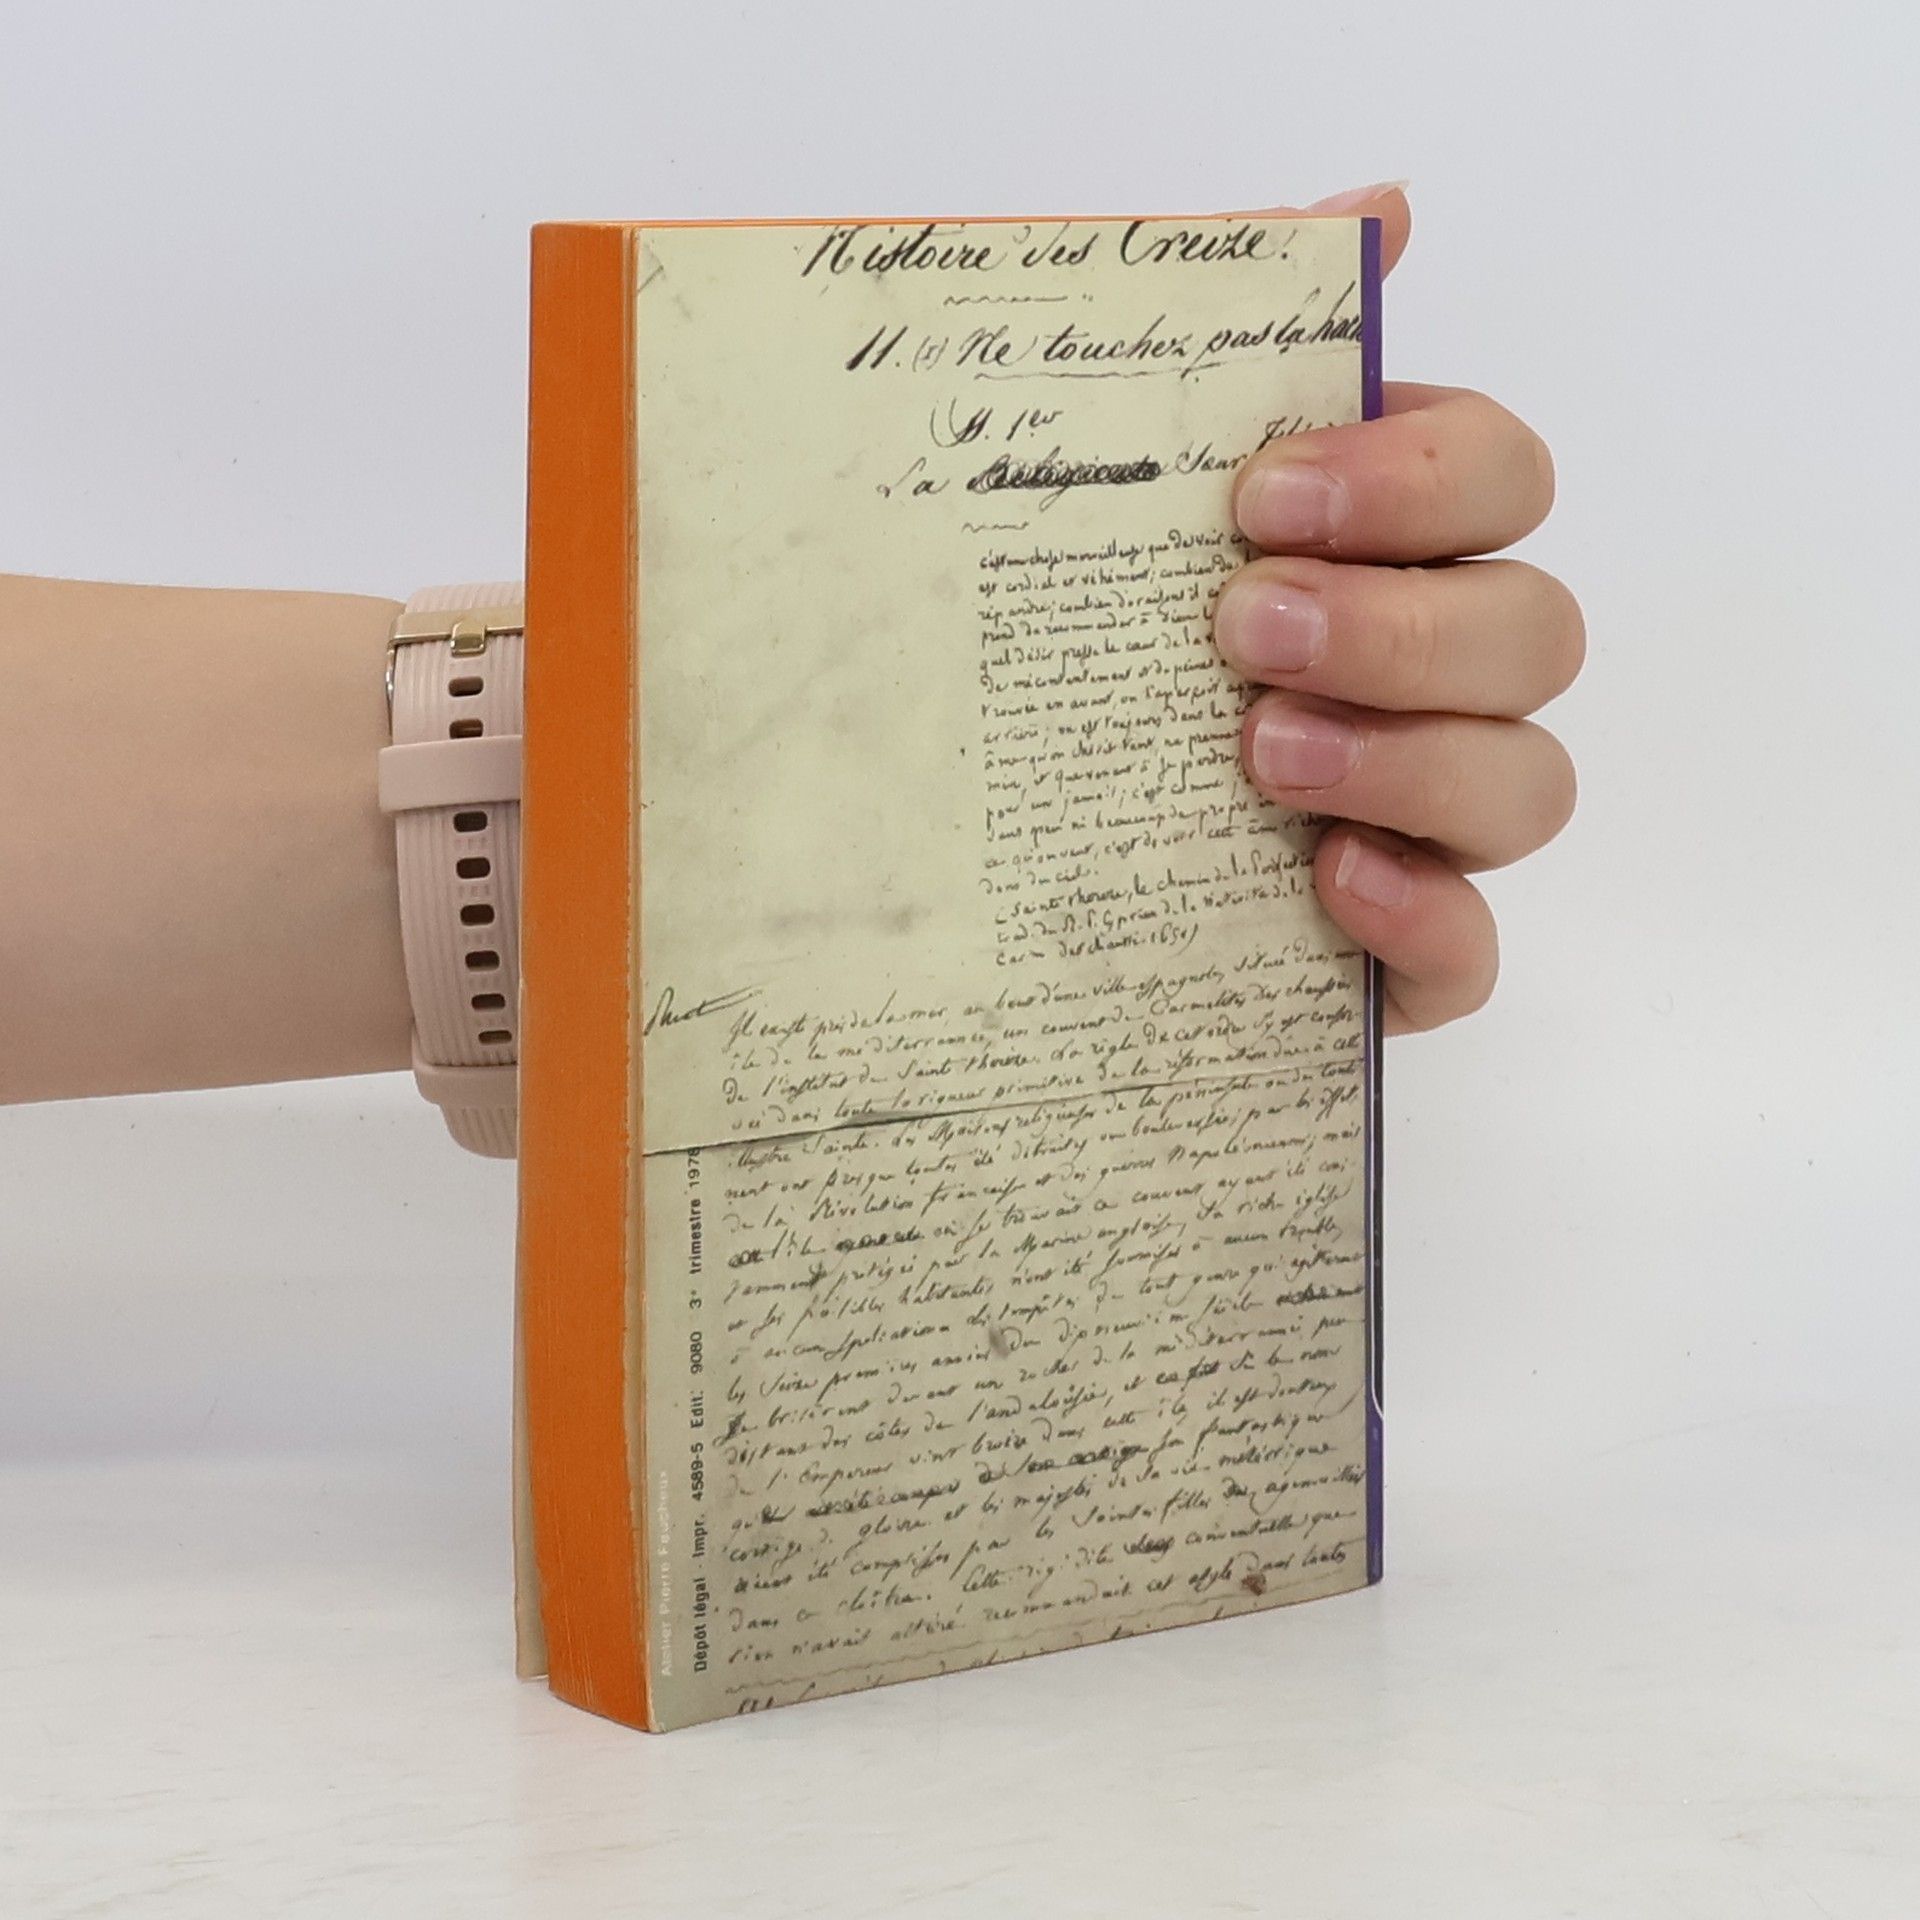 Histoire des Treize.
11. (1) Ne touchez pas la hach
§. 1er
La Religieuse Sœur
c'est une chose merveilleuse que de voir
est cordial et véhément; combien de
répandre; combien d'oraisons il
prend de recommander à Dieu
quel désir presse le cœur de la
de mécontentement et de peines
trouvée en avant, on l'aperçoit
arrière; on est toujours dans la
âme qu'on chérit tant, ne prenne
et que venant à se perdre,
pour un jamais; c'est comme
sans peu ni beaucoup de propre
ce qu'on veut, c'est de voir cette âme riche
dons du ciel.
(Sainte Thérèse, le chemin de la Perfection
trad. du R. P. Cyprien de la Nativité de la
Carm. déchaussé. 165 )
Il existe près de la mer, au bout d'une ville espagnole, située dans une
île de la méditerrannée, un couvent de Carmelites Dechaussées
De l'institut de Sainte Thérèse. La règle de cet ordre s'y est conser-
vée dans toute la rigueur primitive de la réformation due à cette
illustre Sainte. Les Maisons religieuses de la péninsule ou du conti
nent ont presque toutes été détruites ou bouleversées par les effets
de la Révolution française et des guerres Napoléoniennes; mais
l'île où se trouvait ce couvent ayant été cons-
tamment protégée par la Marine anglaise, sa riche église
et ses paisibles habitantes n'ont été soumises à aucun trouble,
à aucune spoliation. Les tempêtes de tout genre qui agitèrent
les seize premières années du dixneuvième siècle
se brisèrent devant un rocher de la méditerrannée peu
distant des côtes de l'andalousie, et si le nom
de l'Empereur vint bruire dans cette île, il est douteux
que son fantastique
cortège de gloire et les majestés de sa vie météorique
aient été comprises par les Saintes filles agenouillées
dans ce cloître. Cette rigidité conventuelle que
rien n'avait altéré recommandait cet asyle dans toutes
Atelier Pierre Faucheux
Dépôt légal - Impr. 4589-5 Edit. 9080 3e trimestre 1978